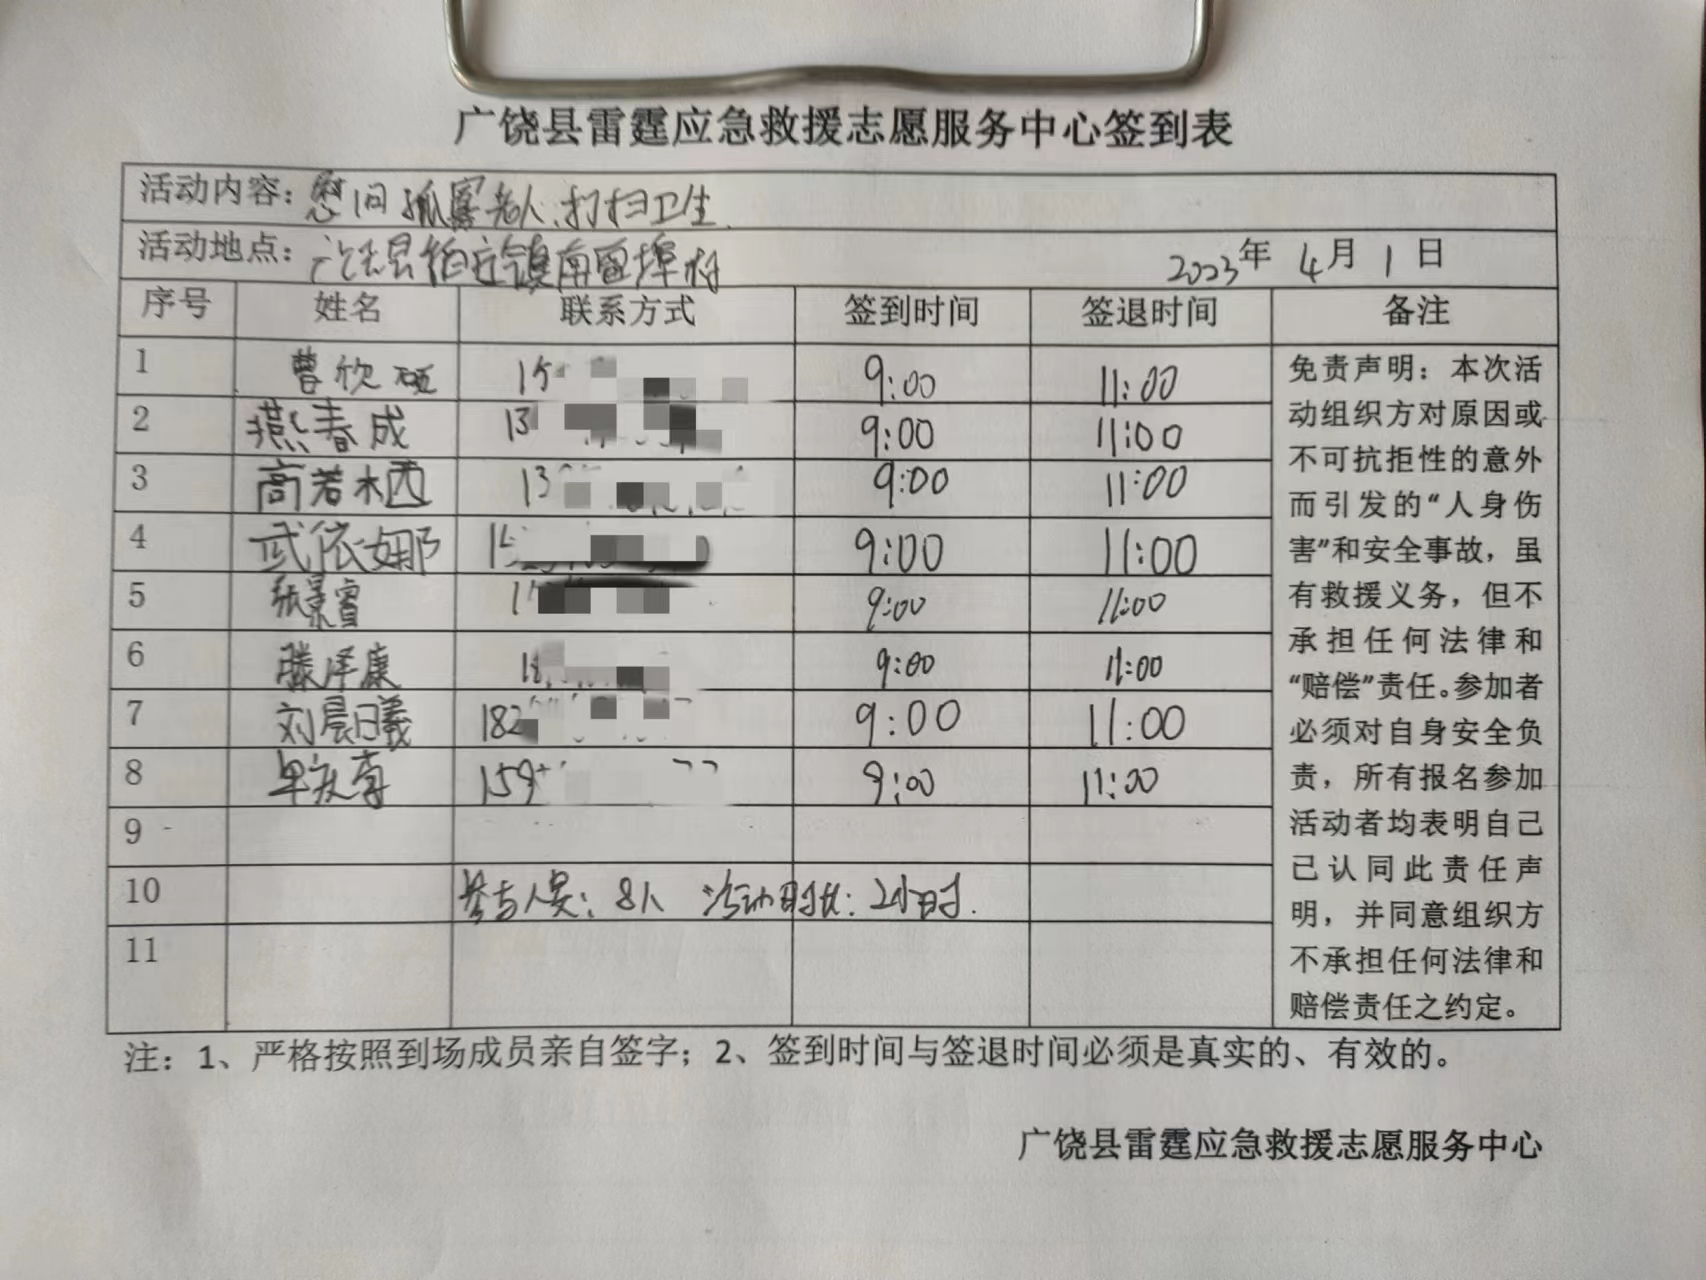 广饶县雷霆应急救援志愿服务中心签到表
活动内容：慰问孤寡老人、打扫卫生.
活动地点：广饶县稻庄镇南西埠村 2023年 4月 1日
序号 姓名 联系方式 签到时间 签退时间 备注
1 曹欣硕 15 9:00 11:00
2 燕春成 13 9:00 11:00
3 高若栖 13 9:00 11:00
4 武依娜 9:00 11:00
5 张景睿 9:00 11:00
6 滕泽康 18 9:00 11:00
7 刘晨曦 182 9:00 11:00
8 159 9:00 11:00
9
10 参与人员：8人 活动时长：2小时.
11
免责声明：本次活
动组织方对原因或
不可抗拒性的意外
而引发的“人身伤
害”和安全事故，虽
有救援义务，但不
承担任何法律和
“赔偿”责任。参加者
必须对自身安全负
责，所有报名参加
活动者均表明自己
已认同此责任声
明，并同意组织方
不承担任何法律和
赔偿责任之约定。
注：1、严格按照到场成员亲自签字；2、签到时间与签退时间必须是真实的、有效的。
广饶县雷霆应急救援志愿服务中心